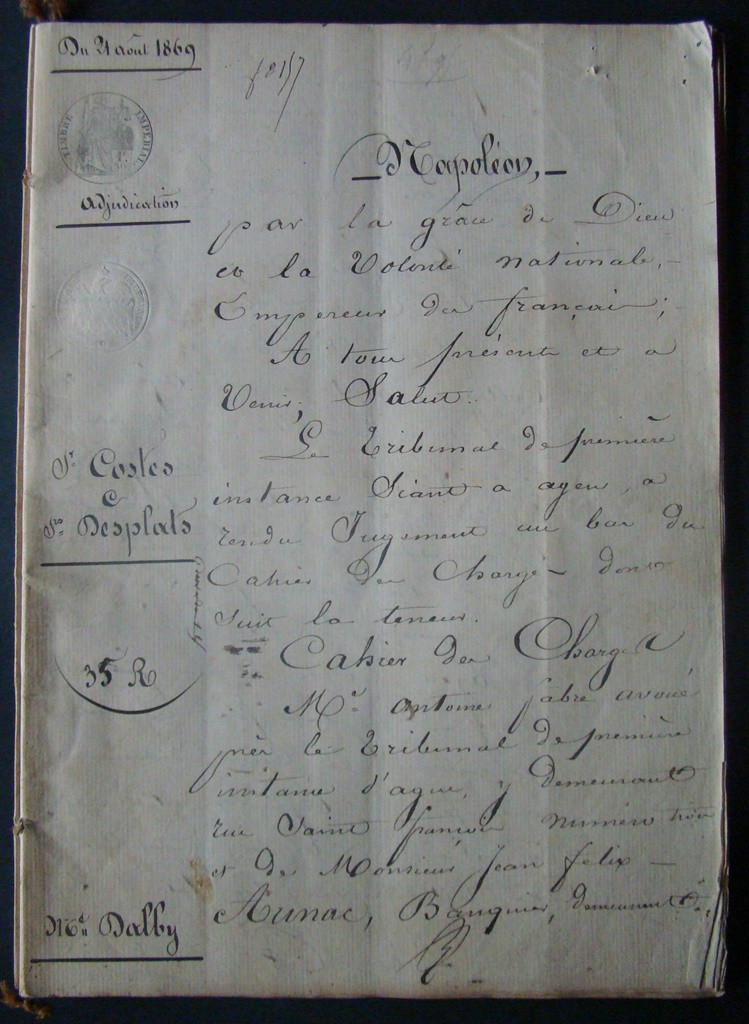 Du 21 août 1869
TIMBRE IMPERIAL
Adjudication
Sr. Costes
&
Sr. Desplats
35 R
Me. Dalby
Napoléon,
par la grâce de Dieu
et la Volonté nationale,
Empereur des français;
A tous présents et a
Venir, Salut.
Le Tribunal de première
instance Séant a agen, a
rendu Jugement au bas du
Cahier des Charges dont
suit la teneur.
Cahier des Charges
Me. antoine fabre avoué
près le Tribunal de première
instance d'agen, y demeurant
rue Saint françois numéro trois
et de Monsieur Jean felix
Aunac, Banquier, demeurant